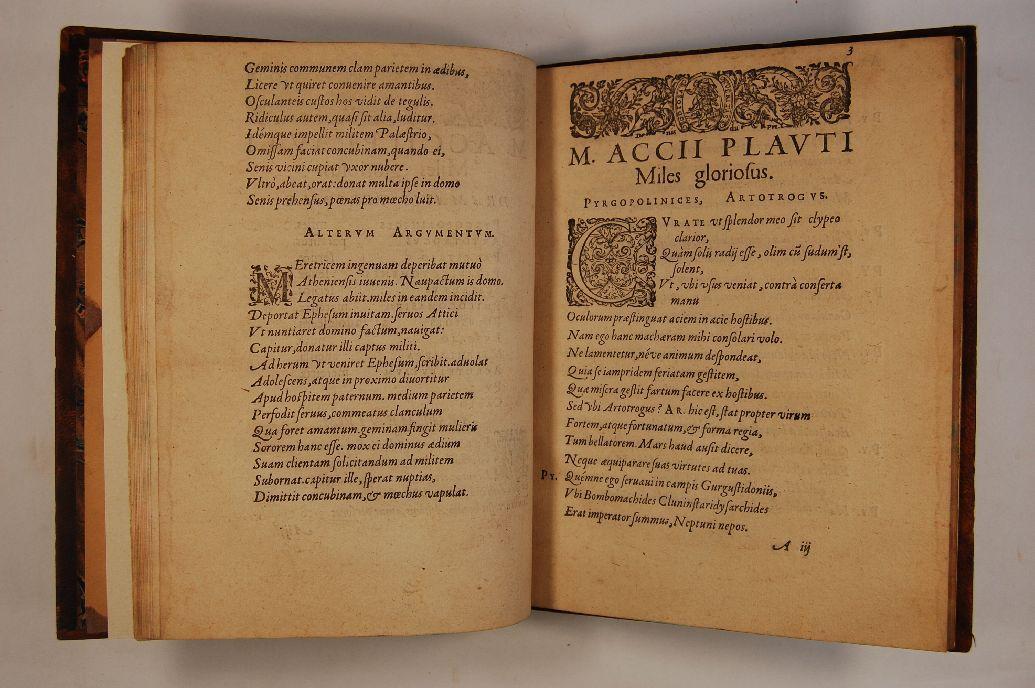 Geminis communem clam parietem in ædibus,
Licere vt quiret conuenire amantibus.
Osculanteis custos hos vidit de tegulis.
Ridiculus autem, quasi sit alia, luditur.
Idémque impellit militem Palæstrio,
Omissam faciat concubinam, quando ei,
Senis vicini cupiat vxor nubere.
Vltrò, abeat, orat: donat multa ipse in domo
Senis prehensus, pœnas pro mœcho luit.
ALTERVM ARGVMENTVM.
MEretricem ingenuam deperibat mutuò
Atheniensis iuuenis. Naupactum is domo.
Legatus abiit. miles in eandem incidit.
Deportat Ephesum inuitam. seruos Attici
Vt nuntiaret domino factum, nauigat:
Capitur, donatur illi captus militi.
Ad herum vt veniret Ephesum, scribit. aduolat
Adolescens, atque in proximo diuortitur
Apud hospitem paternum. medium parietem
Perfodit seruus, commeatus clanculum
Qua foret amantum. geminam fingit mulieris
Sororem hanc esse. mox ei dominus ædium
Suam clientam solicitandum ad militem
Subornat. capitur ille, sperat nuptias,
Dimittit concubinam, & mœchus vapulat.
3
M. ACCII PLAVTI
Miles gloriosus.
PYRGOPOLINICES, ARTOTROGVS.
CVRATE vt splendor meo sit clypeo
clarior,
Quàm solis radij esse, olim cũ sudum'st,
solent,
Vt, vbi vsus veniat, contrà conserta
manu
Oculorum præstinguat aciem in acie hostibus.
Nam ego hanc machæram mihi consolari volo.
Ne lamentetur, néve animum despondeat,
Quia se iampridem feriatam gestitem,
Quæ misera gestit fartum facere ex hostibus.
Sed vbi Artotrogus? AR. hic est, stat propter virum
Fortem, atque fortunatum, & forma regia,
Tum bellatorem. Mars haud ausit dicere,
Neque æquiparare suas virtutes ad tuas.
PY. Quémne ego seruaui in campis Gurgustidoniis,
Vbi Bombomachides Cluninstaridysarchides
Erat imperator summus, Neptuni nepos.
A iij